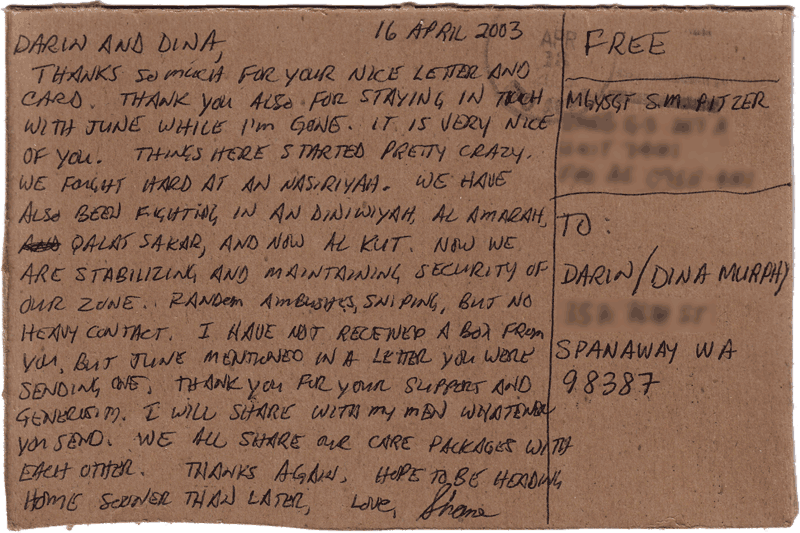 16 APRIL 2003
DARIN AND DINA,
THANKS SO MUCH FOR YOUR NICE LETTER AND
CARD. THANK YOU ALSO FOR STAYING IN TOUCH
WITH JUNE WHILE I'M GONE. IT IS VERY NICE
OF YOU. THINGS HERE STARTED PRETTY CRAZY.
WE FOUGHT HARD AT AN NASIRIYAH. WE HAVE
ALSO BEEN FIGHTING IN AN DINIWIYAH, AL AMARAH,
QALAT SAKAR, AND NOW AL KUT. NOW WE
ARE STABILIZING AND MAINTAINING SECURITY OF
OUR ZONE. RANDOM AMBUSHES, SNIPING, BUT NO
HEAVY CONTACT. I HAVE NOT RECEIVED A BOX FROM
YOU, BUT JUNE MENTIONED IN A LETTER YOU WERE
SENDING ONE. THANK YOU FOR YOUR SUPPORT AND
GENEROSITY. I WILL SHARE WITH MY MEN WHATEVER
YOU SEND. WE ALL SHARE OUR CARE PACKAGES WITH
EACH OTHER. THANKS AGAIN. HOPE TO BE HEADING
HOME SOONER THAN LATER, LOVE, Shane
FREE
MGYSGT S.M. PITZER
TO:
DARIN/DINA MURPHY
SPANAWAY WA
98387